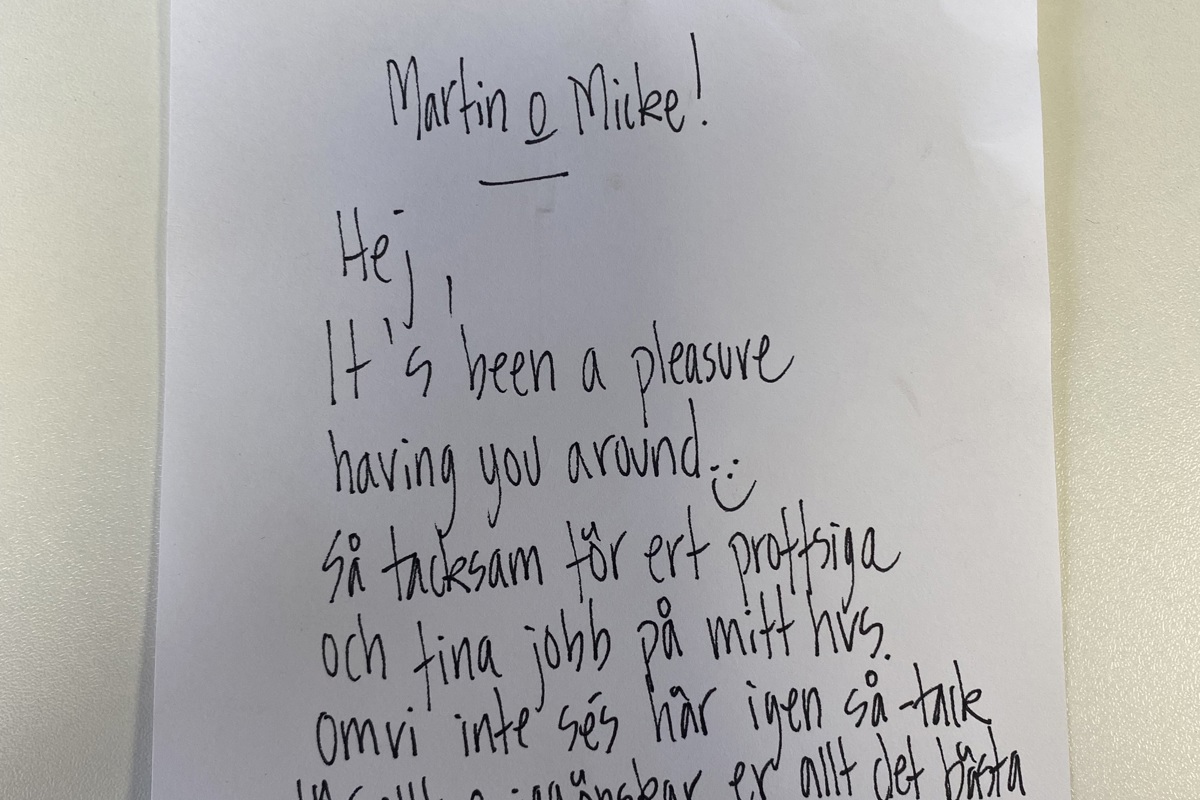 Martin o Micke!
Hej,
It's been a pleasure
having you around :)
så tacksam för ert proffsiga
och fina jobb på mitt hus.
omvi inte ses här igen så -tack
önskar er allt det bästa